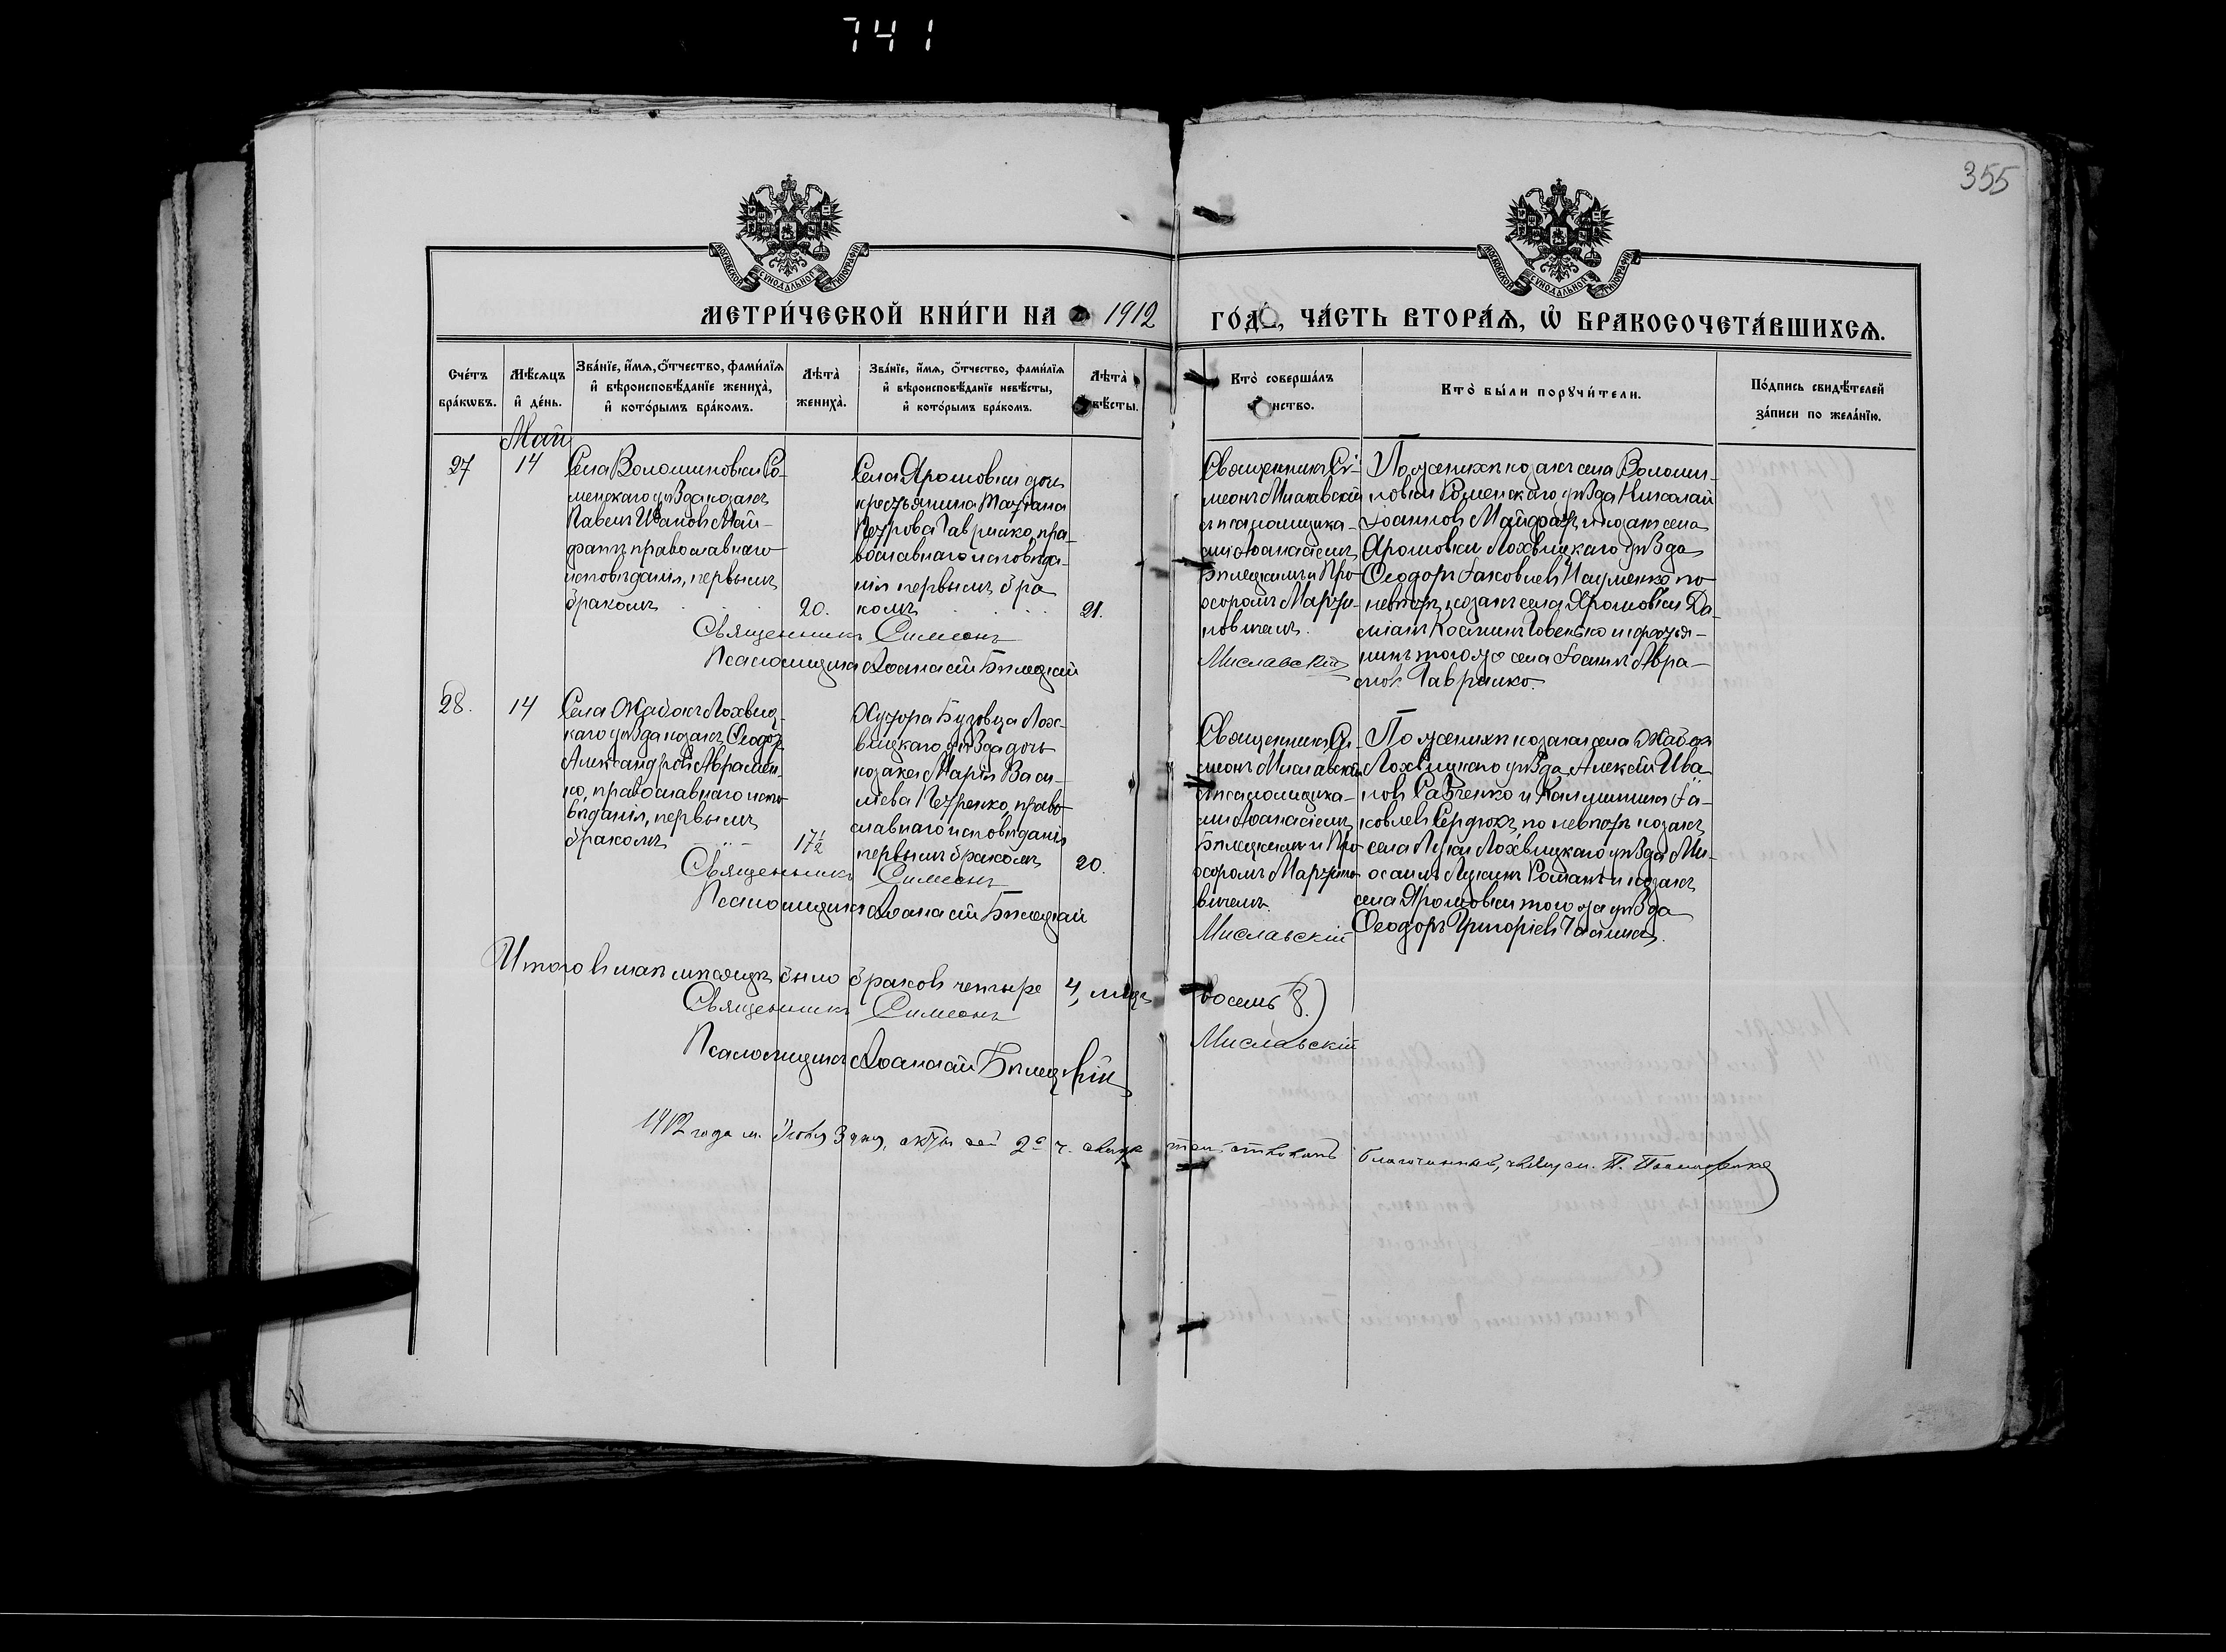 741
355
МОСКОВСКОЙ СѴНОДАЛЬНОЙ ТИПОГРАФІИ
МОСКОВСКОЙ СѴНОДАЛЬНОЙ ТИПОГРАФІИ
МЕТРИ́ЧЕСКОЙ КНИ́ГИ НА 1912 ГО́Д, ЧА́СТЬ ВТОРА́Ѧ, Ѡ҆ БРАКОСОЧЕТА́ВШИХСѦ.
Сче́тъ
бра́кѡвъ.
Мѣ́сѧцъ
и҆ де́нь.
Зва́нїе, и҆́мѧ, ѻ҆́тчество, фами́лїѧ
и҆ вѣроисповѣ́данїе жениха̀,
и҆ кото́рымъ бра́комъ.
Лѣта̀
жениха̀.
Зва́нїе, и҆́мѧ, ѻ҆́тчество, фами́лїѧ
и҆ вѣроисповѣ́данїе невѣ́сты,
и҆ кото́рымъ бра́комъ.
Лѣта̀
вѣ́сты.
Кто̀ соверша́лъ
нство.
Кто̀ бы́ли порꙋчи́тели.
По́дпись свидѣ́телей
за́писи по жела́нїю.
Май
27
14
Села Волошиновки Ро-
менскаго уѣзда козакъ
Павелъ Ивановъ Май-
фатъ православнаго
исповѣданія, первымъ
бракомъ
20.
Села Ярошовки дочь
крестьянина Татіана
Петрова Гавришко, пра-
вославнаго исповѣда-
нія первымъ бра
комъ
21.
Священникъ Си-
меонъ Миславскій
съ псаломщика-
ми Аѳанасіемъ
Билецкимъ и Про-
хоромъ Марти-
новичемъ.
По женихѣ козакъ села Волошин-
новки Роменскаго уѣзда Николай
Іоанновъ Майфатъ и козакъ села
Ярошовки Лохвицкаго уѣзда
Ѳеодоръ Іаковлевъ Науменко по
невѣстѣ козакъ села Ярошовки Да-
міанъ Косминъ Говенько и крестья-
нинъ того же села Іоаннъ Авра-
Гавришко.
Священникъ Симеонъ Миславскій
Псаломщикъ Аѳанасій Билецкій
28.
14
Села Жабокъ Лохвиц-
каго уѣзда козакъ Ѳеодоръ
Александровъ Авраменко-
ко, православнаго испо-
вѣданія, первымъ
бракомъ
17½
Хутора Бузовца Лох-
вицкаго уѣзда дочь
козака Марія Васи-
ліева Петренко, право-
славнаго исповѣданія
первымъ бракомъ
20.
Священникъ Си-
меонъ Миславскій
съ псаломщика-
ми Аѳанасіемъ
Билецкимъ и Про-
хоромъ Мартино-
вичемъ.
По женихѣ козаки села Жабокъ
Лохвицкаго уѣзда Алексѣй Ива-
новъ Савченко и Іа-
ковлевъ Сердюкъ, по невѣстѣ козакъ
села Луки Лохвицкаго уѣзда Ми-
хаилъ Лукинъ Романъ и козакъ
села Ярошовки того же уѣзда
Ѳеодоръ Григоріевъ
Священникъ Симеонъ Миславскій
Псаломщикъ Аѳанасій Билецкій
Итого въ маѣ мѣсяцѣ было браковъ четыре 4, лицъ восемь 8.)
Священникъ Симеонъ Миславскій
Псаломщикъ Аѳанасій Билецкій
1912 года м. Іюня 3 дня, акты сей 2й ч. свидѣтельствовалъ благочинный, свящ.